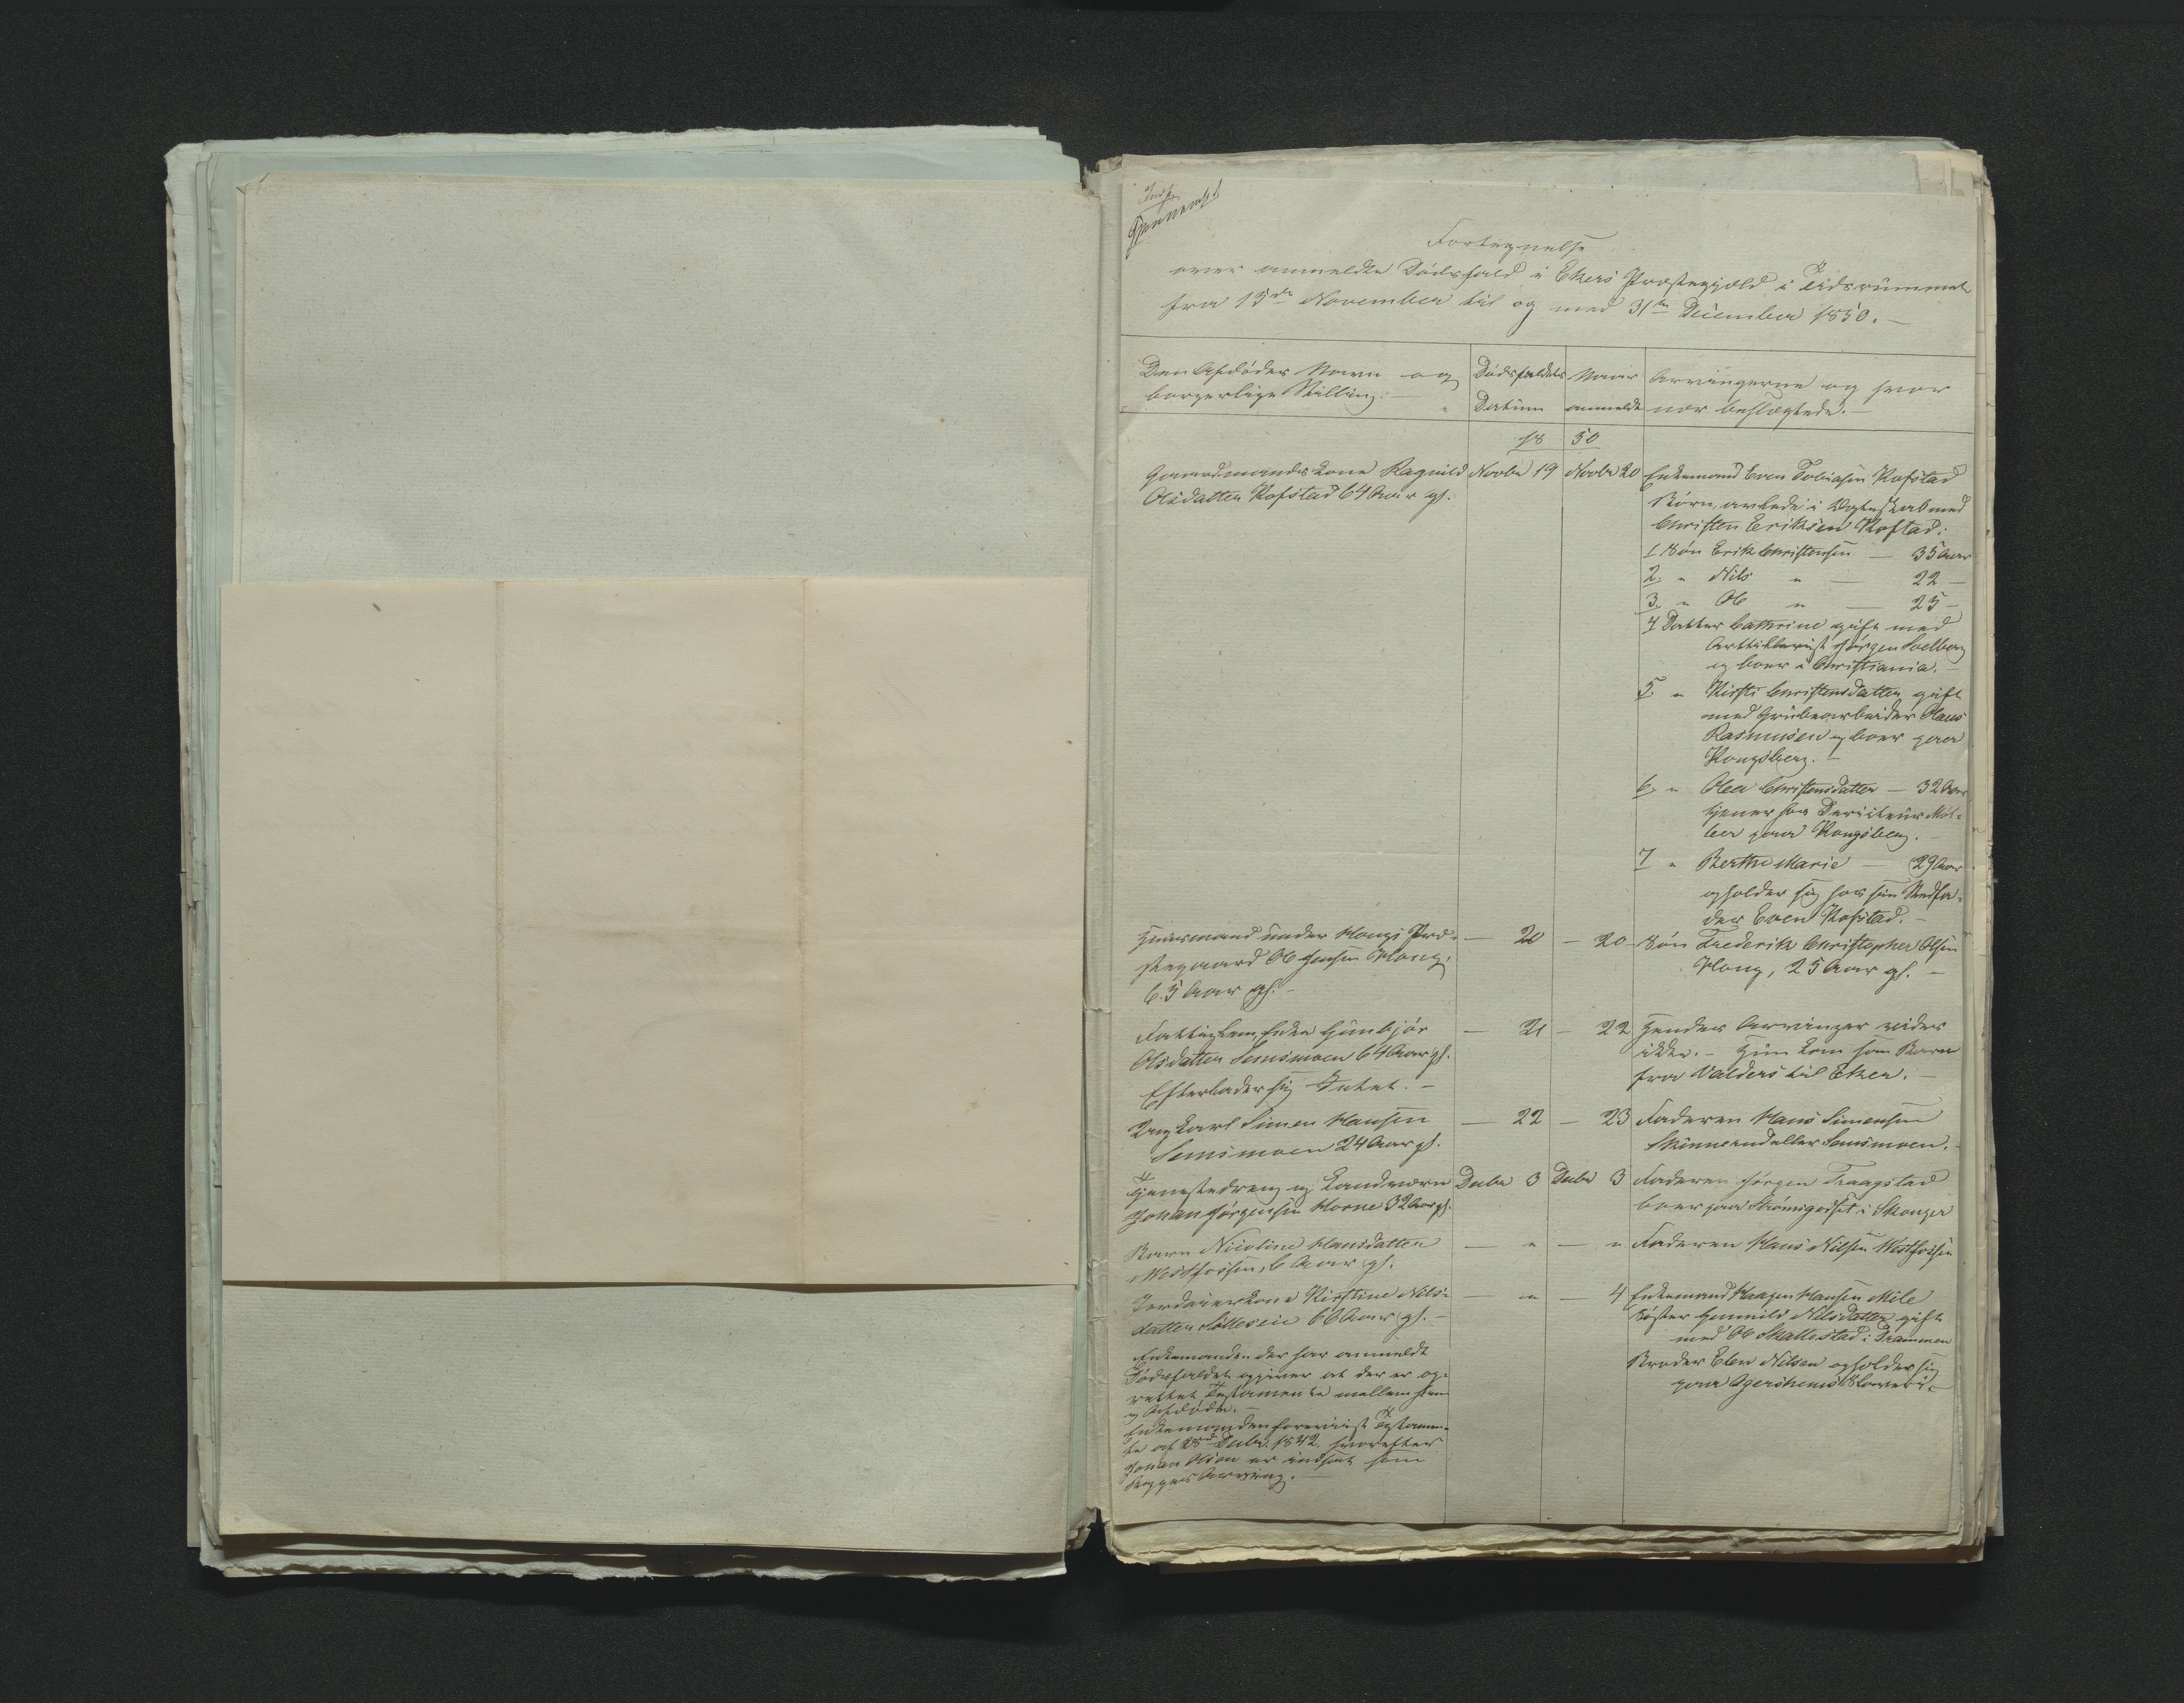 Fortegnelse
over anmeldte Dødsfald i Ekers Præstegjeld i Tidsrummet
fra 15de November til og med 31te December 1850.
Den Afdødes Navn og
borgerlige Stilling.
Dødsfaldets
Datum
Naar
anmeldt
Arvingerne og hvor
nær beslægtede.
18 50
Gaardmandskone Ragnild Novbr 19 Novbr 20 Enkemand Even Tobiasen Kofstad
Olsdatter Kofstad 64 Aar gl. Børn, avlede i Ægteskab med
Christen Eriksen Kofstad:
1 Søn Erik Christensen — 35 Aar
2. " Nils " — 22 —
3. " Ole " — 25 —
4 Datter Cathrine gift med
Arttillerist Jørgen Solberg
og boer i Christiania. —
5. " Kirsti Christensdatter gift
med Grubearbeider Claus
Rasmusen og boer paa
Kongsberg. —
6. " Olea Christensdatter — 32 Aar
tjener hos Directeur Møl-
ler paa Kongsberg. —
7 " Berthe Marie — 29 Aar
opholder sig hos sin Stedfa-
der Even Kofstad. —
Huusmand under Hougs Præ- — 20 — 20 Søn Frederik Christopher Olsen
stegaard Ole Jensen Houg, Houg, 25 Aar gl. —
65 Aar gl. —
Fattiglem, Enke Gunbjør — 21 — 22 Hendes Arvinger vides
Olsdatter Semsmoen 64 Aar gl. ikke. — Hun kom som Barn
Efterlader sig Intet. — fra Valders til Eker. —
Ungkarl Simen Hansen — 22 — 23 Faderen Hans Simensen
Semsmoen 24 Aar gl. eller Semsmoen.
Tjenestedreng og Landværn Decbr 3 Decbr 3 Faderen Jørgen Traagstad
Johan Jørgensen Horne 32 Aar gl. boer paa Strømsgodset i Skouger
Barn Nicoline Hansdatter — " — " Faderen Hans Nilsen Westfossen
Westfossen, 6 Aar gl.
Jordeierkone Kirstine Nils- — " — 4 Enkemand Haagen Hansen Mile
datter 66 Aar gl. — Søster Gunnild Nilsdatter gift
med Ole Skallestad i Drammen
Enkemanden der har anmeldt
Dødsfaldet opgiver at der er op- Broder Elen Nilsen opholder sig
rettet Testamente mellem ham paa
og Afdøde. —
Enkemanden foreviist Testamen-
te af Decbr. 1842, hvorefter
Johan Olsen er indsat som
Arving. —